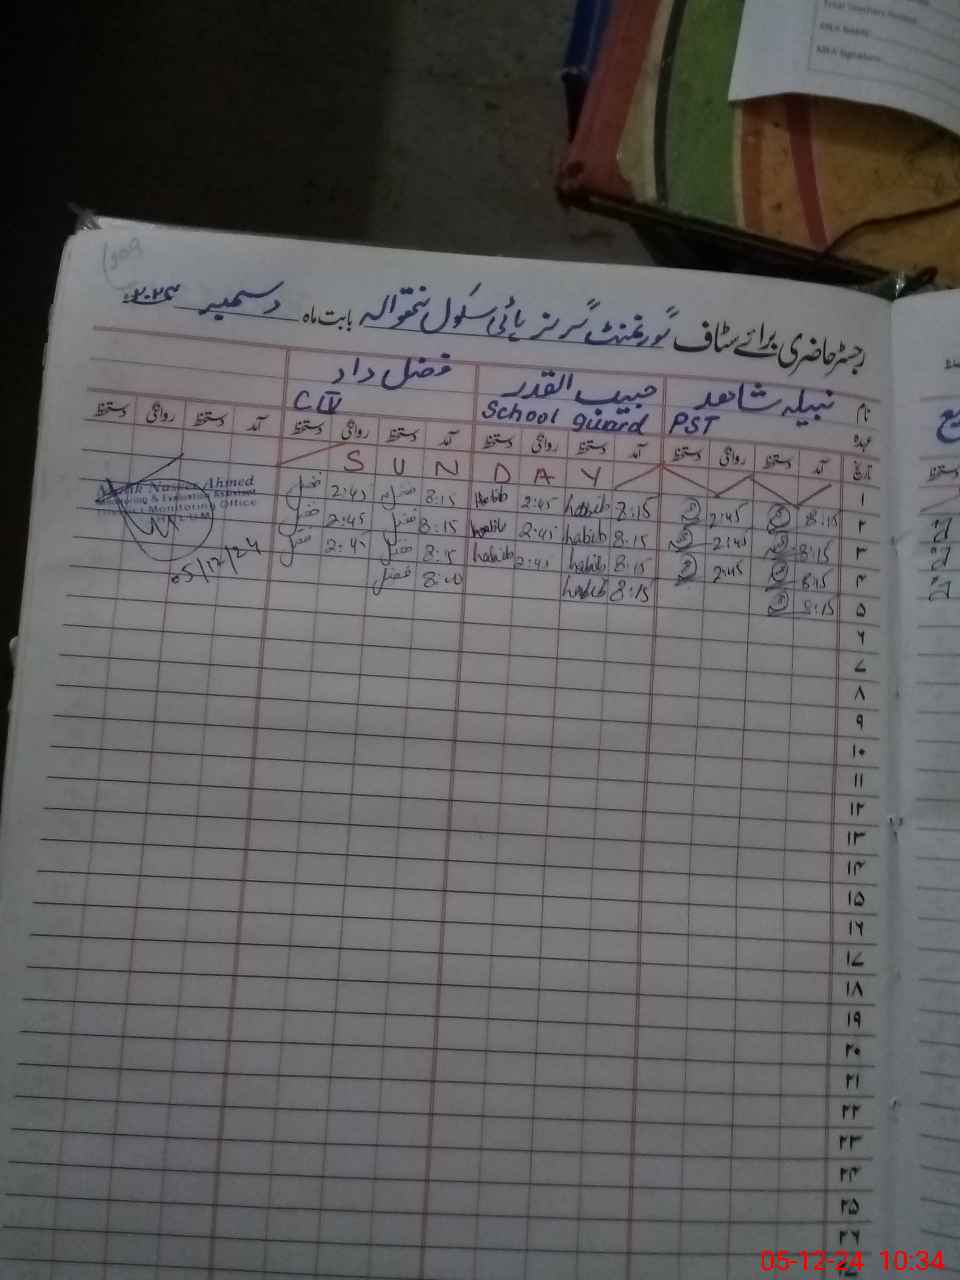 Total Teachers Posted
MEA Name:
MEA Signature:
رجسٹر حاضری برائے سٹاف گورنمنٹ گرلز ہائی سکول نتھوالہ بابت ماہ دسمبر ۲۰۲۴ء
نام نبیلہ شاھد حبیب القدر فضل داد
عہدہ PST School guard C IV
تاریخ آمد دستخط روانگی دستخط آمد دستخط روانگی دستخط آمد دستخط روانگی دستخط آمد دستخط روانگی دستخط
۱ S U N D A Y
۲ 8:15 2:45 8:15 habib 2:45 Habib 8:15 فضل 2:45 فضل
۳ 8:15 2:45 8:15 habib 2:45 habib 8:15 فضل 2:45 فضل
۴ 8:15 2:45 8:15 habib 2:45 habib 8:15 فضل 2:45 فضل
۵ 8:15 8:15 habib 8:00 فضل
Nasir Ahmed
Monitoring & Evaluation Assistant
District Monitoring Office
05/12/24
۶
۷
۸
۹
۱۰
۱۱
۱۲
۱۳
۱۴
۱۵
۱۶
۱۷
۱۸
۱۹
۲۰
۲۱
۲۲
۲۳
۲۴
۲۵
۲۶
05-12-24 10:34